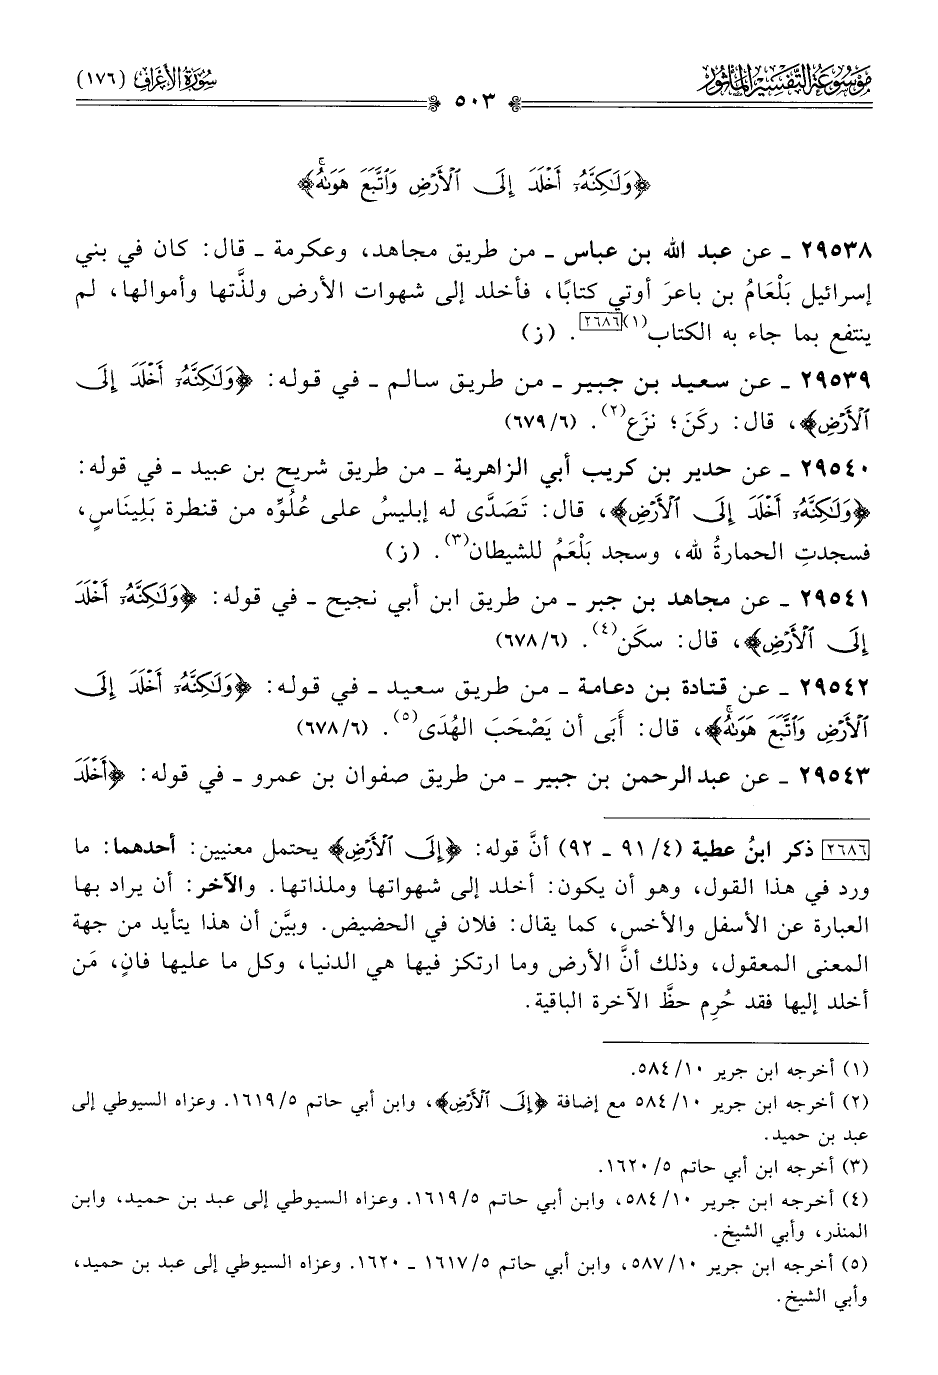 موسوعة التفسير المأثور
سورة الأعراف (١٧٦)
٥٠٣
﴿وَلَٰكِنَّهُۥٓ أَخۡلَدَ إِلَى ٱلۡأَرۡضِ وَٱتَّبَعَ هَوَىٰهُۚ﴾
٢٩٥٣٨ ـ عن عبد الله بن عباس ـ من طريق مجاهد، وعكرمة ـ قال: كان في بني
إسرائيل بَلْعَامُ بن باعرَ أوتي كتابًا، فأخلد إلى شهوات الأرض ولذَّتها وأموالها، لم
ينتفع بما جاء به الكتاب(١)[٢٦٨٦]. (ز)
٢٩٥٣٩ ـ عن سعيد بن جبير ـ من طريق سالم ـ في قوله: ﴿وَلَٰكِنَّهُۥٓ أَخۡلَدَ إِلَى
ٱلۡأَرۡضِ﴾، قال: ركَنَ؛ نزَع(٢). (٦٧٩/٦)
٢٩٥٤٠ ـ عن حدير بن كريب أبي الزاهرية ـ من طريق شريح بن عبيد ـ في قوله:
﴿وَلَٰكِنَّهُۥٓ أَخۡلَدَ إِلَى ٱلۡأَرۡضِ﴾، قال: تَصَدَّى له إبليسُ على عُلُوِّه من قنطرة بَلِينَاسٍ،
فسجدتِ الحمارةُ لله، وسجد بَلْعَمُ للشيطان(٣). (ز)
٢٩٥٤١ ـ عن مجاهد بن جبر ـ من طريق ابن أبي نجيح ـ في قوله: ﴿وَلَٰكِنَّهُۥٓ أَخۡلَدَ
إِلَى ٱلۡأَرۡضِ﴾، قال: سكَن(٤). (٦٧٨/٦)
٢٩٥٤٢ ـ عن قتادة بن دعامة ـ من طريق سعيد ـ في قوله: ﴿وَلَٰكِنَّهُۥٓ أَخۡلَدَ إِلَى
ٱلۡأَرۡضِ وَٱتَّبَعَ هَوَىٰهُۚ﴾، قال: أَبَى أن يَصْحَبَ الهُدَى(٥). (٦٧٨/٦)
٢٩٥٤٣ ـ عن عبد الرحمن بن جبير ـ من طريق صفوان بن عمرو ـ في قوله: ﴿أَخۡلَدَ
[٢٦٨٦] ذكر ابنُ عطية (٤/ ٩١ ـ ٩٢) أنَّ قوله: ﴿إِلَى ٱلۡأَرۡضِ﴾ يحتمل معنيين: أحدهما: ما
ورد في هذا القول، وهو أن يكون: أخلد إلى شهواتها وملذاتها. والآخر: أن يراد بها
العبارة عن الأسفل والأخس، كما يقال: فلان في الحضيض. وبيَّن أن هذا يتأيد من جهة
المعنى المعقول، وذلك أنَّ الأرض وما ارتكز فيها هي الدنيا، وكل ما عليها فانٍ، مَن
أخلد إليها فقد حُرِم حظَّ الآخرة الباقية.
(١) أخرجه ابن جرير ١٠/ ٥٨٤.
(٢) أخرجه ابن جرير ١٠/ ٥٨٤ مع إضافة ﴿إِلَى ٱلۡأَرۡضِ﴾، وابن أبي حاتم ٥/ ١٦١٩. وعزاه السيوطي إلى
عبد بن حميد.
(٣) أخرجه ابن أبي حاتم ٥/ ١٦٢٠.
(٤) أخرجه ابن جرير ١٠/ ٥٨٤، وابن أبي حاتم ٥/ ١٦١٩. وعزاه السيوطي إلى عبد بن حميد، وابن
المنذر، وأبي الشيخ.
(٥) أخرجه ابن جرير ١٠/ ٥٨٧، وابن أبي حاتم ٥/ ١٦١٧ ـ ١٦٢٠. وعزاه السيوطي إلى عبد بن حميد،
وأبي الشيخ.